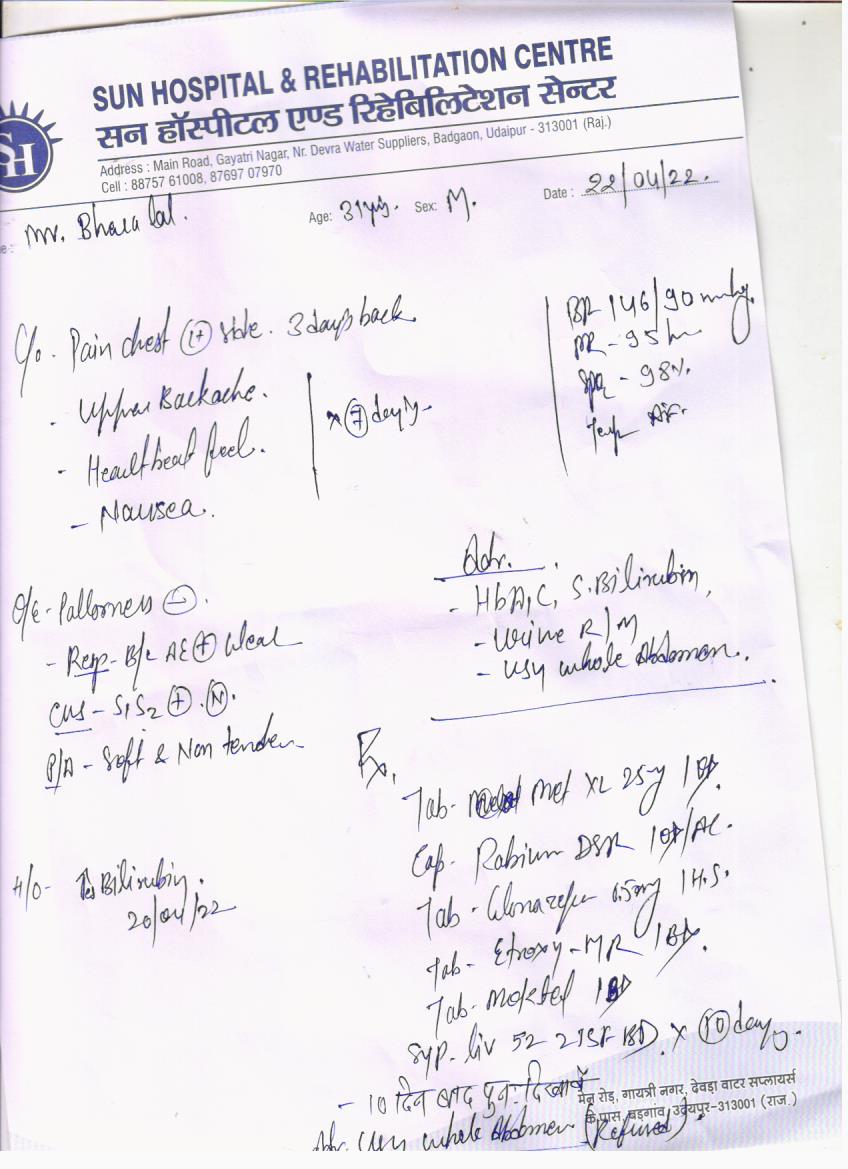 SUN HOSPITAL & REHABILITATION CENTRE
सन हॉस्पीटल एण्ड रिहेबिलिटेशन सेन्टर
Address : Main Road, Gayatri Nagar, Nr. Devra Water Suppliers, Badgaon, Udaipur - 313001 (Raj.)
Cell : 88757 61008, 87697 07970
SH
Mr. Bhara lal. Age: 31 yrs. Sex: M. Date : 22/04/22.
C/o. Pain chest 3 days back.
- Upper Backache.
- Heart beat feel.
- Nausea.
x 7 days
BP 146/90 mmhg.
PR - 95
SpO2 - 98%.
Temp Af.
O/E - Pallorness -.
- Resp - B/L AE + clear
CVS - S1S2 + N.
P/A - Soft & Non tender
Adv.
- HbA1C, S. Bilirubin,
- Urine R/M
- USG whole Abdomen.
H/O - Bilirubin.
20/04/22
Rx,
Tab - Met XL 25mg 1 OD.
Cap - Rabium DSR 1 OD/AC.
Tab - 0.5mg 1 H.S.
Tab - Etroxy-MR 1 BD.
Tab - 1 BD
Syp. liv 52 2TSF BD. x 10 days.
- 10 दिन बाद पुनः दिखायें
मेन रोड़, गायत्री नगर, देवड़ा वाटर सप्लायर्स
के पास, बड़गांव, उदयपुर-313001 (राज.)
Adv. USG whole Abdomen (Refused).